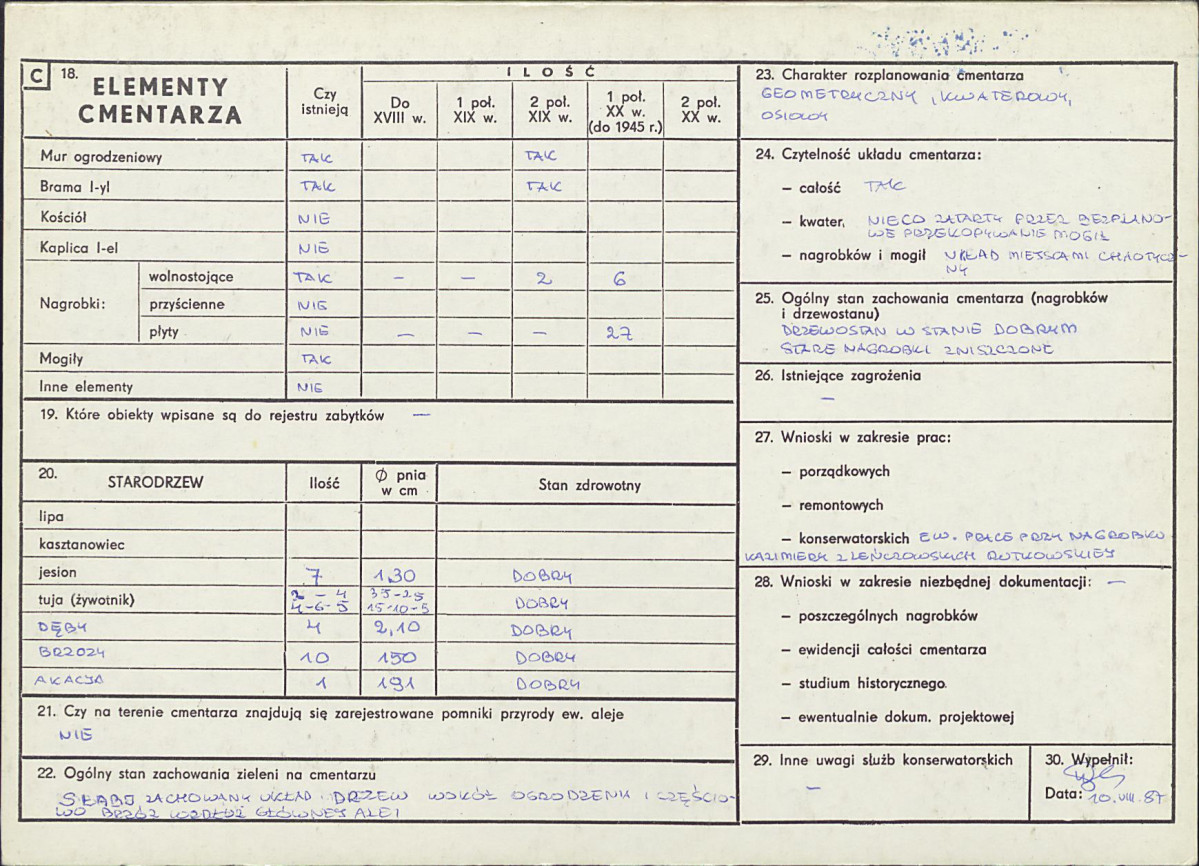 C 18. ELEMENTY CMENTARZA
Czy istnieją
ILOŚĆ
Do XVIII w.
1 poł. XIX w.
2 poł. XIX w.
1 poł. XX w. (do 1945 r.)
2 poł. XX w.
Mur ogrodzeniowy TAK TAK
Brama I-yl TAK TAK
Kościół NIE
Kaplica I-el NIE
Nagrobki:
wolnostojące TAK — — 2 6
przyścienne NIE
płyty NIE — — — 27
Mogiły TAK
Inne elementy NIE
19. Które obiekty wpisane są do rejestru zabytków —
20. STARODRZEW Ilość Ø pnia w cm Stan zdrowotny
lipa
kasztanowiec
jesion 7 1,30 DOBRY
tuja (żywotnik) 2 – 4 35-25 DOBRY
4-6-5 15-10-5
DĘBY 4 2,10 DOBRY
BRZOZY 10 150 DOBRY
AKACJA 1 191 DOBRY
21. Czy na terenie cmentarza znajdują się zarejestrowane pomniki przyrody ew. aleje
NIE
22. Ogólny stan zachowania zieleni na cmentarzu
SŁABO ZACHOWANY UKŁAD DRZEW WOKÓŁ OGRODZENIA I CZĘŚCIO-
WO BRZÓZ WZDŁUŻ GŁÓWNEJ ALEI
23. Charakter rozplanowania cmentarza
GEOMETRYCZNY, KWATEROWY,
OSIOWY
24. Czytelność układu cmentarza:
– całość TAK
– kwater, NIECO ZATARTY PRZEZ BEZPLANO-
WE PRZEKOPYWANIE MOGIŁ
– nagrobków i mogił UKŁAD MIEJSCAMI CHAOTYCZ-
NY
25. Ogólny stan zachowania cmentarza (nagrobków
i drzewostanu)
DRZEWOSTAN W STANIE DOBRYM
STARE NAGROBKI ZNISZCZONE
26. Istniejące zagrożenia
—
27. Wnioski w zakresie prac:
– porządkowych
– remontowych
– konserwatorskich EW. PRACE PRZY NAGROBKU
KAZIMIERY Z LEŃCZOWSKICH RUTKOWSKIEJ
28. Wnioski w zakresie niezbędnej dokumentacji: —
– poszczególnych nagrobków
– ewidencji całości cmentarza
– studium historycznego
– ewentualnie dokum. projektowej
29. Inne uwagi służb konserwatorskich
—
30. Wypełnił:
Data: 10.VIII.87